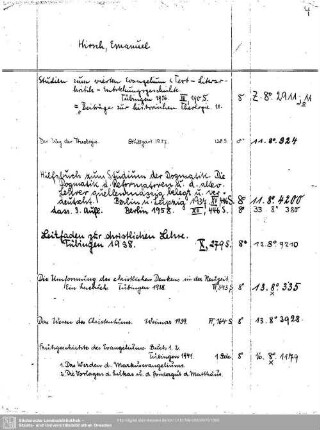 4
Hirsch, Emanuel
Studien zum vierten Evangelium (Text - Literar-
kritik - Entstehungsgeschichte.
Tübingen 1936. 190 S. 8° Z. 8° 2911, 11
= Beiträge zur historischen Theologie 11.
Der Weg der Theologie. Stuttgart 1937. 8° 11. 8°. 924
Hilfsbuch zum Studium der Dogmatik. Die
Dogmatik d. Reformatoren u. d. altev.
Lehrer quellenmässig belegt u. ver-
deutscht. Berlin u. Leipzig 1937. 446 S. 8° 11. 8° 4200
dass. 3. Aufl. Berlin 1958. XII, 446 S. 8° 33 8° 380
Leitfaden zur christlichen Lehre.
Tübingen 1938. X, 279 S. 8° 12. 8° 9210
Die Umformung des christlichen Denkens in der Neuzeit.
Ein Lesebuch. Tübingen 1938. 8° 13. 8° 335
Das Wesen des Christentums. Weimar 1939. 8° 13. 8° 3928
Frühgeschichte des Evangeliums. Buch 1. 2.
Tübingen 1941. 8° 16. 8° 1179
1. Das Werden d. Markusevangeliums.
2. Die Vorlagen d. Lukas u. d. Sondergut d. Matthäus